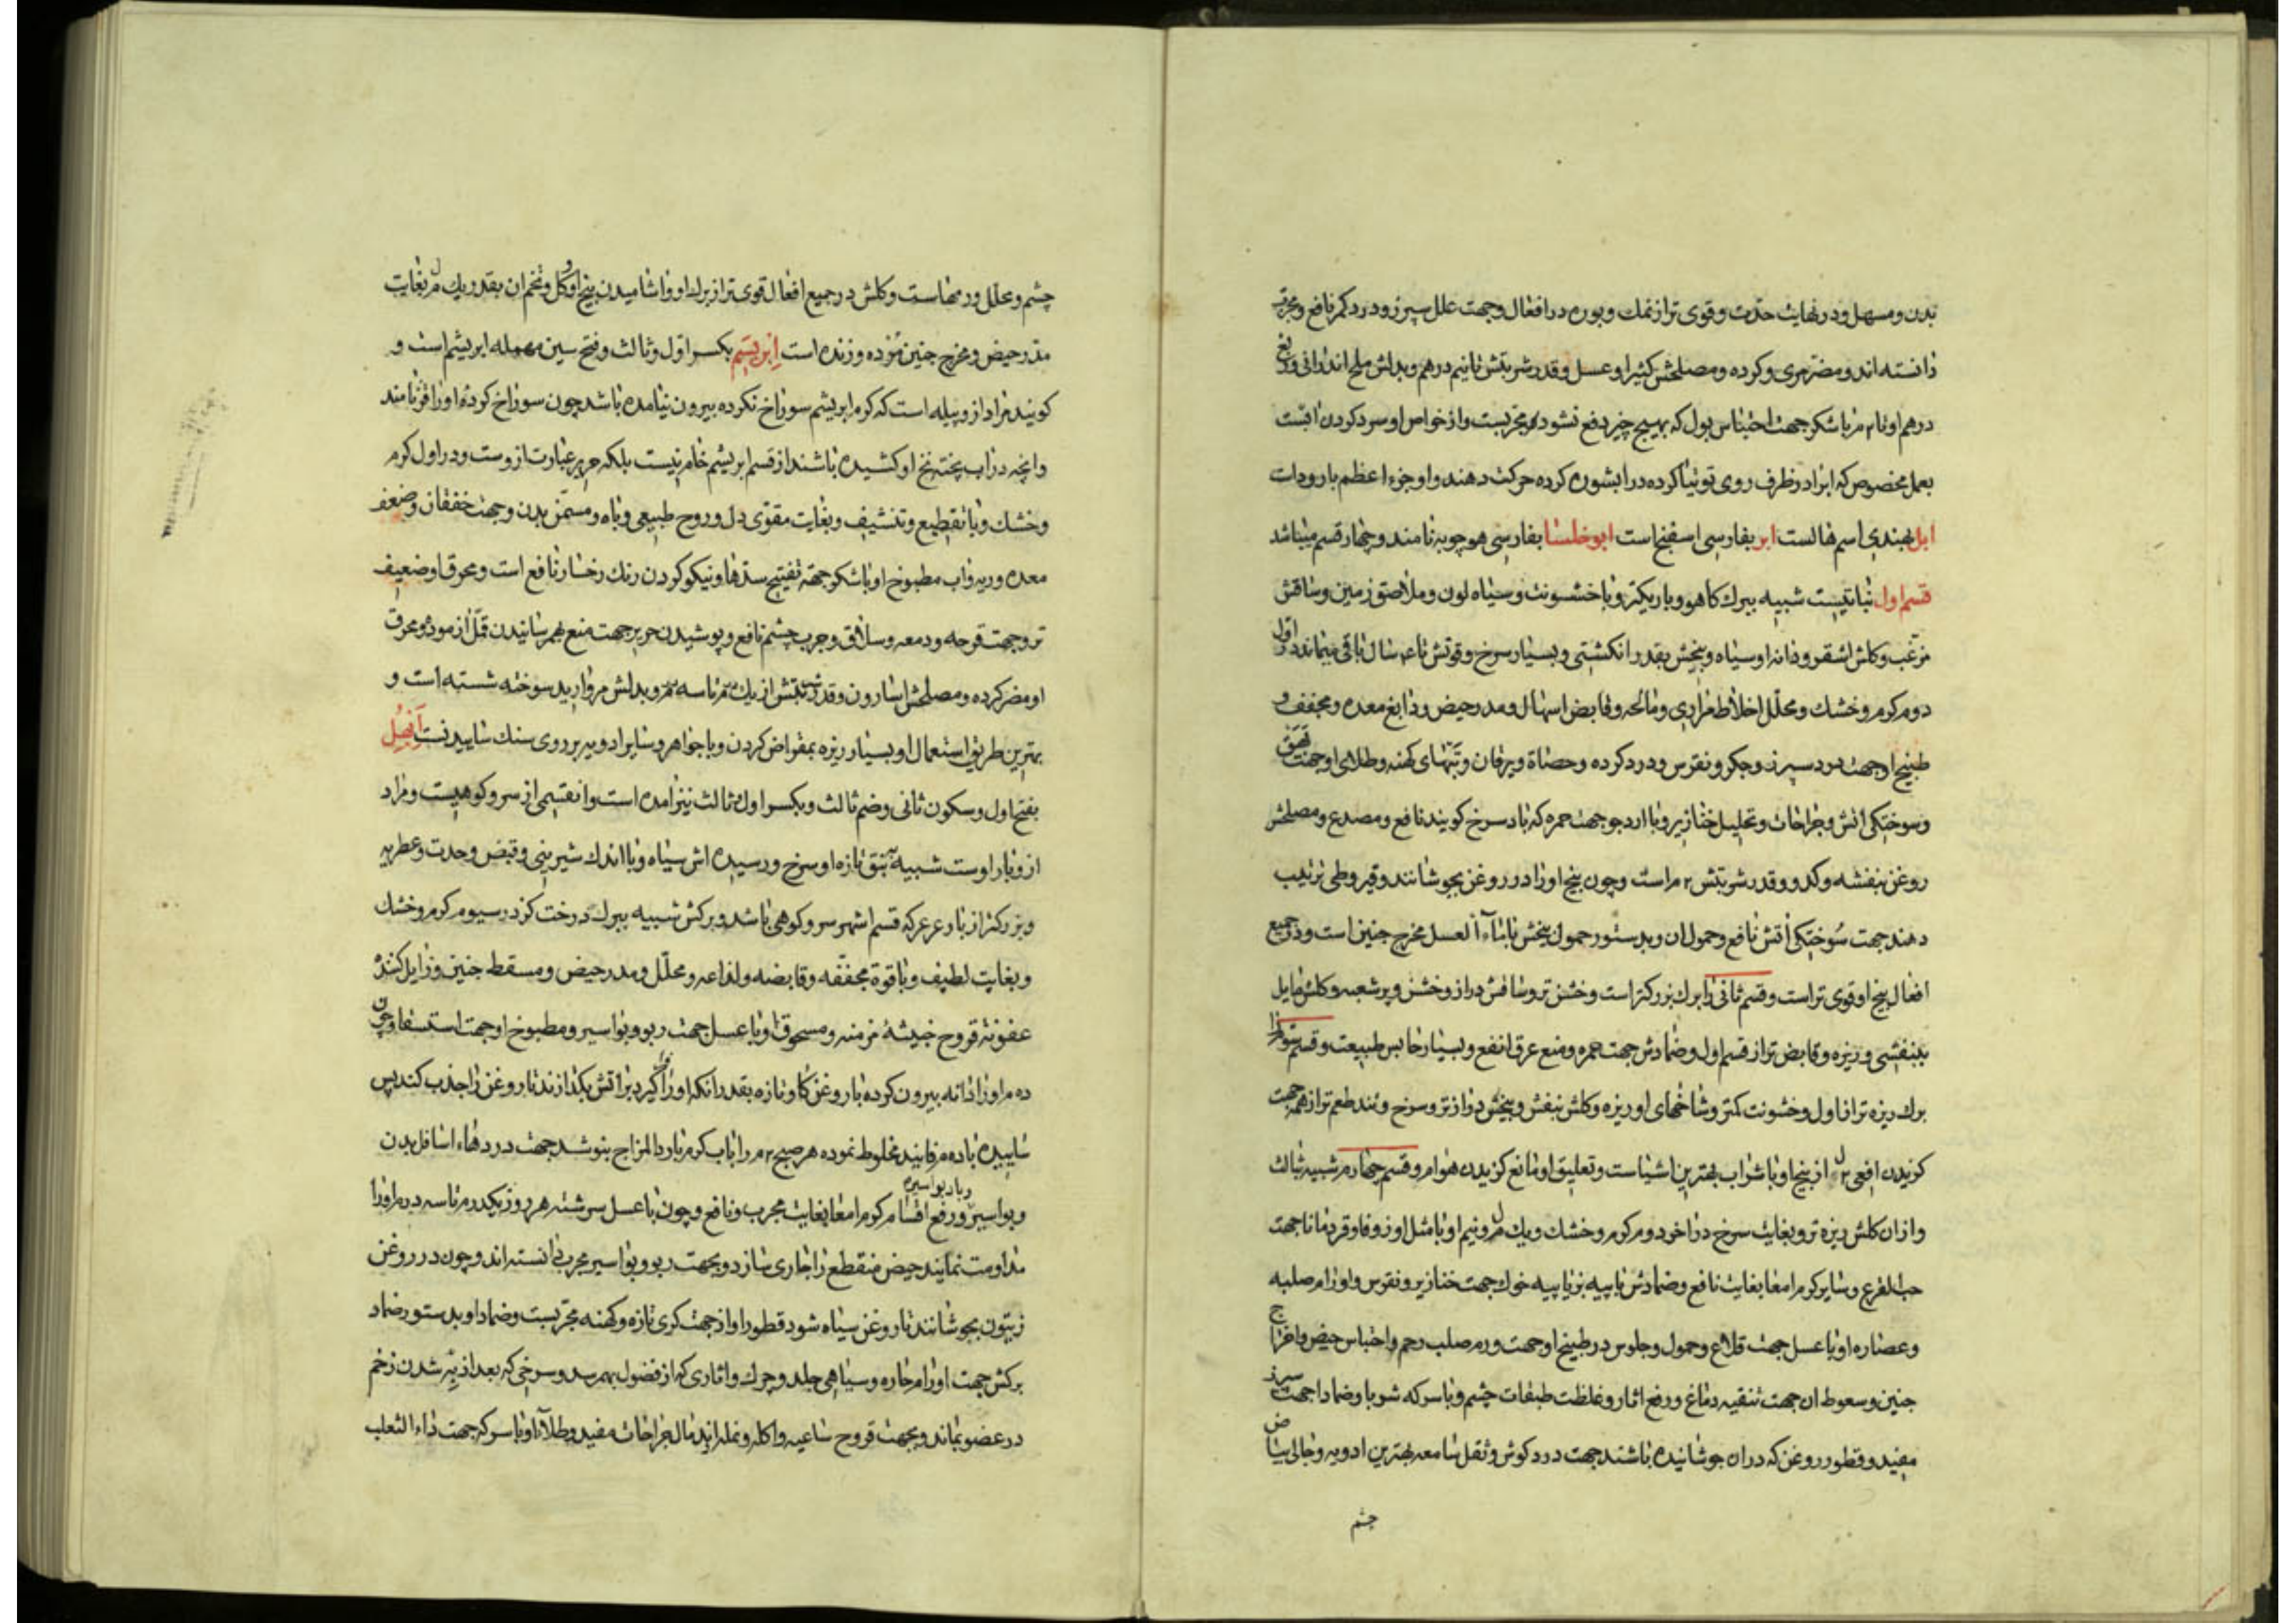 بدن و مسهل و در نهایت حدّت و قوی تر از نمك و بوره در افعال و جهت علل سپرز و درد کمر نافع و مجرّب
دانسته اند و مضرّ مری و کرده و مصلحش کثیرا و عسل و قدر شربتش تا نیم درهم و بدلش ملح اندرانی و ربع
درهم او تا ۲ م با شکر جهت احتباس بول که بهیچ چیز دفع نشود مجربست و از خواص او سرد کردن آبست
بعمل مخصوص که آب را در ظرف روی توتیا کرده در آب شوره کرده حرکت دهند و او جزء اعظم بارودات
ابل بهندی اسم هالست ابر بفارسی اسفنج است ابو خلسا بفارسی هوچوبه نامند و چهار قسم میباشد
قسم اول نباتیست شبیه ببرك کاهو و باریکتر و با خشونت و سیاه لون و ملاصق زمین و ساقش
مزغب و کلش اشقر و دانه او سیاه و بیخش بقدر انکشتی و بسیار سرخ و قوتش تا ۴ سال باقی میماند در اول
دوم کرم و خشك و محلّل اخلاط مراری و مالحه و قابض اسهال و مدر حیض و دابغ معده و مجفف و
طبیخ او جهت درد سپرز و جکر و نقرس و درد کرده و حصاة و یرقان و تبّهای کهنه و طلای او جهت بهق
و سوختکی آتش و جراحات و تحلیل خنازیر و با آرد جو جهت حمره که باد سرخ کویند نافع و مصدع و مصلحش
روغن بنفشه و کدو و قدر شربتش ۲ م است و چون بیخ او را در روغن بجوشانند و قیروطی ترتیب
دهند جهت سوختکی آتش نافع و حمول آن و بدستور حمول بیخش با ماء العسل مخرج جنین است و در جمیع
افعال بیخ او قوی تر است و قسم ثانی را برك بزرکتر است و خشن تر و ساقش دراز و خشن و پر شعبه و کلش مایل
ببنفشی و ریزه و قابض تر از قسم اول و ضمادش جهت حمره و منع عرق انفع و بسیار حابس طبیعت و قسم سوم را
برك ریزه تر از اول و خشونت کمتر و شاخهای او ریزه و کلش بنفش و بیخش درازتر و سرخ و تند طعم تر از همه جهت
کزیدن افعی ۲ م از بیخ او با شراب بهترین اشیاست و تعلیق او مانع کزیدن هوام و قسم چهارم شبیه ثالث
و از آن کلش ریزه تر و بغایت سرخ در آخر دوم کرم و خشك و یك م و نیم او با مثل او زوفا و قردمانا جهت
حب القرع و سایر کرم امعا بغایت نافع و ضمادش با پیه بز یا پیه خوك جهت خنازیر و نقرس و اورام صلبه
و عصاره او با عسل جهت قلاع و حمول و جلوس در طبیخ او جهت ورم صلب رحم و احتباس حیض و اخراج
جنین و سعوط آن جهت تنقیه دماغ و رفع آثار و غلظت طبقات چشم و با سرکه شوبا و ضماد او جهت سپرز
مفید و قطور روغن که در آن جوشانیده باشند جهت درد کوش و ثقل سامعه بهترین ادویه و جالی بیاض
چشم
چشم و علل ورمهاست و کلش در جمیع افعال قوی تر از برك او و آشامیدن بیخ او و کل و تخم آن بقدر یك م بغایت
مدر حیض و مخرج جنین مرده و زنده است ابریسم بکسر اول و ثالث و فتح سین مهمله ابریشم است و
کویند مراد از و پیله است که کرم ابریشم سوراخ نکرده بیرون نیامده باشد چون سوراخ کرده او را قز نامند
و انچه در آب پخته نخ او کشیده باشند از قسم ابریشم خام نیست بلکه حریر عبارت ازوست و در اول کرم
و خشك و با تقطیع و تنشیف و بغایت مقوی دل و روح طبیعی و باه و مسمّن بدن و جهت خفقان و ضعف
معده و ریه و آب مطبوخ او با شکر جهة تفتیح سدّها و نیکو کردن رنك رخسار نافع است و محرق او ضعیف
تر و جهت قرحه و دمعه و سلاق و جرب چشم نافع و پوشیدن حریر جهت منع بهم رسانیدن قمّل آزموده و محرق
او مضر کرده و مصلحش اسارون و قدر شربتش از یك م تا سه م و بدلش مروارید سوخته شسته است و
بهترین طریق استعمال او بسیار ریزه بمقراض کردن و با جواهر و سایر ادویه بر روی سنك ساییدنست ابهل
بفتح اول و سکون ثانی و ضم ثالث و بکسر اول و ثالث نیز آمده است و آن قسمی از سرو کوهیست و مراد
ازو بار اوست شبیه بنبق تازه او سرخ و رسیده اش سیاه و با اندك شیرینی و قبض و حدت و عطریه
و بزرکتر از بار عرعر که قسم اشهر سرو کوهی باشد و برکش شبیه ببرك درخت کز در سیوم کرم و خشك
و بغایت لطیف و با قوة مجففه و قابضه و لذاعه و محلّل و مدر حیض و مسقط جنین و زایل کننده
عفونة قروح خبیثه مزمنه و مسحوق او با عسل جهت ربو و بواسیر و مطبوخ او جهت استسقا و چون
ده م او را دانه بیرون کرده با روغن کاو تازه بقدر آنکه او را فرا گیرد بر آتش بکذارند تا روغن را جذب کند پس
ساییده با ده م فانید مخلوط نموده هر صبح ۲ م را با آب کرم بارد المزاج بنوشد جهت دردهاء اسافل بدن
و بواسیر و باد بواسیر و رفع اقسام کرم امعا بغایت مجرب و نافع و چون با عسل سرشته هر روز یکدرم تا سه درم او را
مداومت نمایند حیض منقطع را جاری سازد و بجهت ربو و بواسیر مجرب دانسته اند و چون در روغن
زیتون بجوشانند تا روغن سیاه شود قطور او از جهت کری تازه و کهنه مجربست و ضماد او بدستور ضماد
برکش جهت اورام حاره و سیاهی جلد و چرك و آثاری که از فضول بهم رسد و سرخی که بعد از به شدن زخم
در عضو بماند و بجهت قروح ساعیه و اکله و نمله و اندمال جراحات مفید و طلاء او با سرکه جهت داء الثعلب